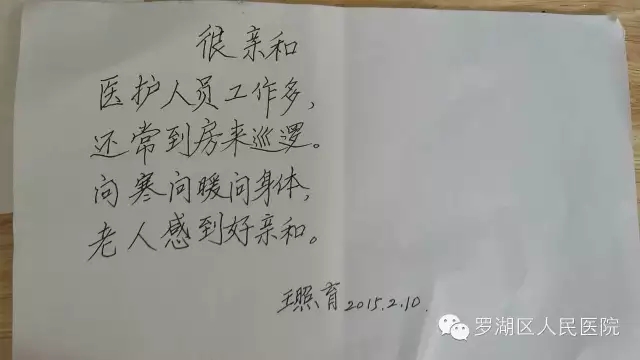 很亲和
医护人员工作多，
还常到房来巡逻。
问寒问暖问身体，
老人感到好亲和。
王照育 2015.2.10.
罗湖区人民医院